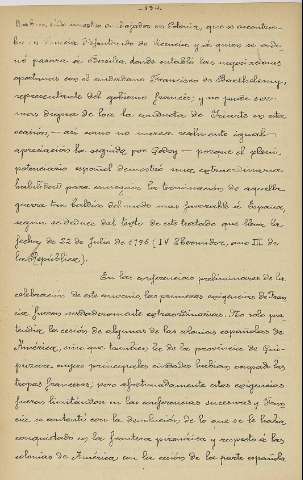 -134-
nuestro embajador en Polonia, que se encontra-
ba en Venecia disfrutando de licencia y a quien se orde-
nó pasara a Basilea donde entabló las negociaciones
oportunas con el ciudadano Francisco de Barthelemy,
representante del gobierno francés; y no puede ser
mas digna de loa la conducta de Iriarte en esta
ocasión, - así como no merece realmente igual
apreciación la seguida por Godoy - porque el pleni-
potenciario español demostró una extraordinaria
habilidad para conseguir la terminación de aquella
guerra tan baldía del modo mas favorable a España,
segun se deduce del texto de este tratado que lleva la
fecha de 22 de Julio de 1795 (IV Thermidor, año III de
la República).
En las conferencias preliminares de la
celebración de este convenio, las primeras exigencias de Fran-
cia fueron verdaderamente extraordinarias. No solo pre-
tendia la cesión de algunas de las colonias españolas de
América, sino que tambien la de la provincia de Gui-
púzcoa cuyas principales ciudades habian ocupado las
tropas francesas; pero afortunadamente estas exigencias
fueron limitándose en las conferencias sucesivas y Fran-
cia se contentó con la devolución de lo que se le había
conquistado en la frontera pirenáica y respecto á las
colonias de América con la cesión de la parte española